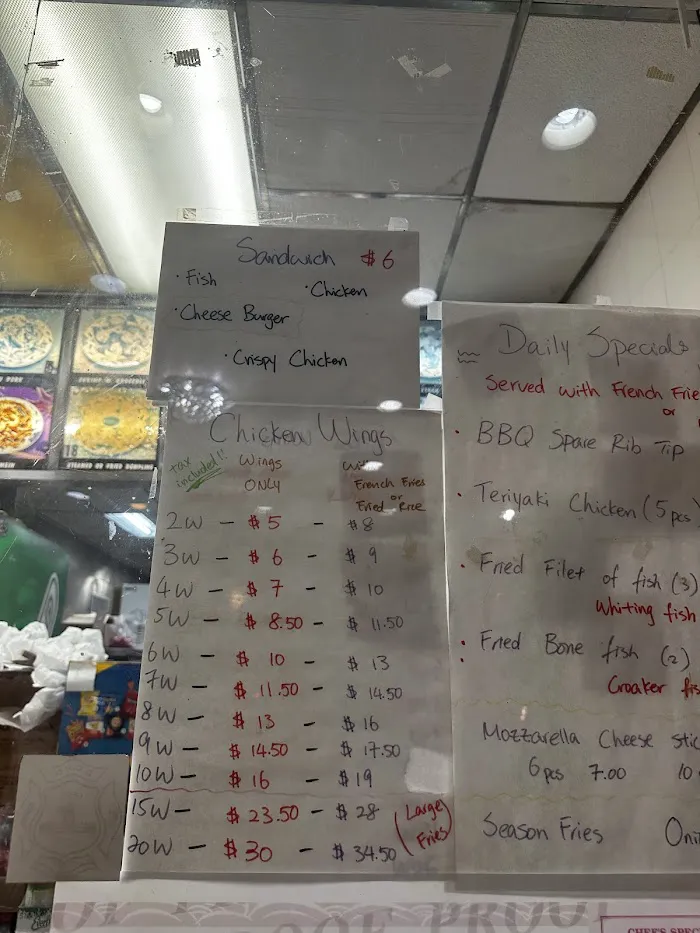 Sandwich $6
· Fish
· Chicken
· Cheese Burger
· Crispy Chicken
Chicken Wings
tax included!!
Wings ONLY
With French Fries or Fried Rice
2W - $5 - $8
3W - $6 - $9
4W - $7 - $10
5W - $8.50 - $11.50
6W - $10 - $13
7W - $11.50 - $14.50
8W - $13 - $16
9W - $14.50 - $17.50
10W - $16 - $19
15W - $23.50 - $28
20W - $30 - $34.50
(Large Fries)
Daily Specials
Served with French Frie
or
· BBQ Spare Rib Tip
· Teriyaki Chicken (5pcs)
· Fried Filet of fish (3)
Whiting fish
: Fried Bone fish (2)
Croaker fis
Mozzarella Cheese stic
6pcs 7.00 10
Season Fries Oni
PROOF
CHEF'S SPEC